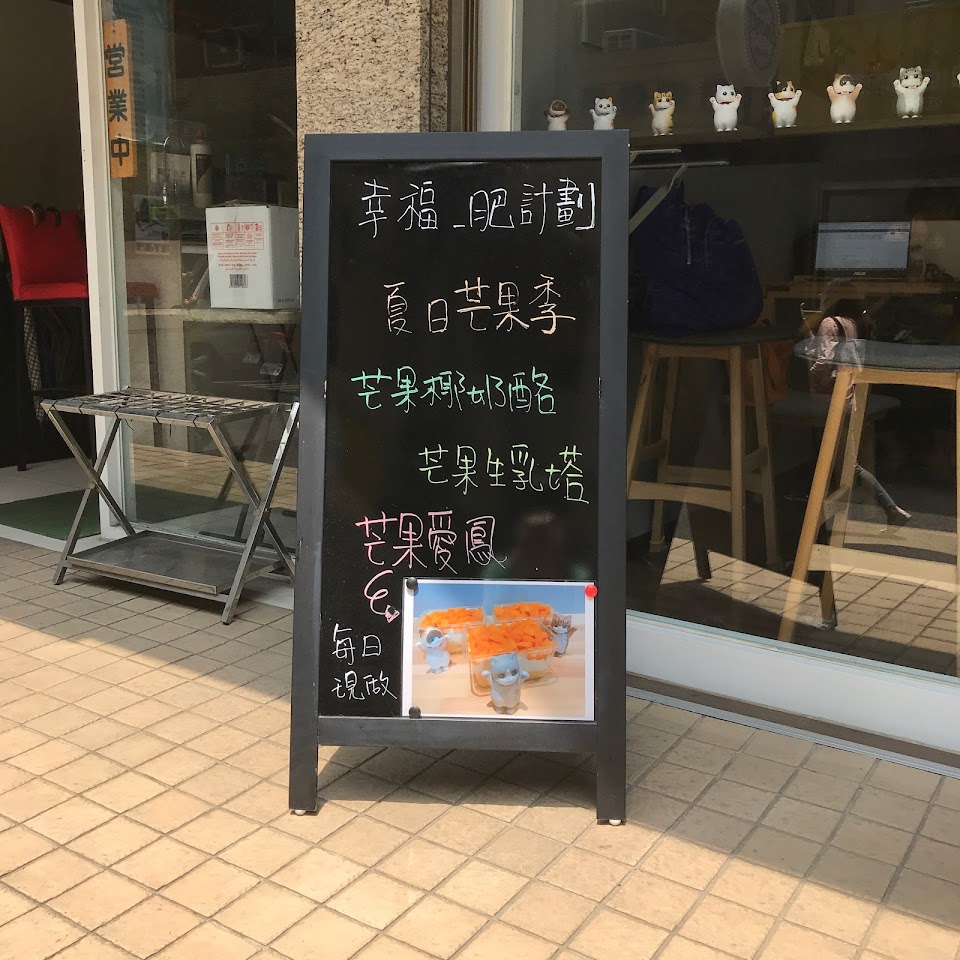 営業中
幸福_肥計劃
夏日芒果季
芒果椰奶酪
芒果生乳塔
芒果愛鳳
每日
現做